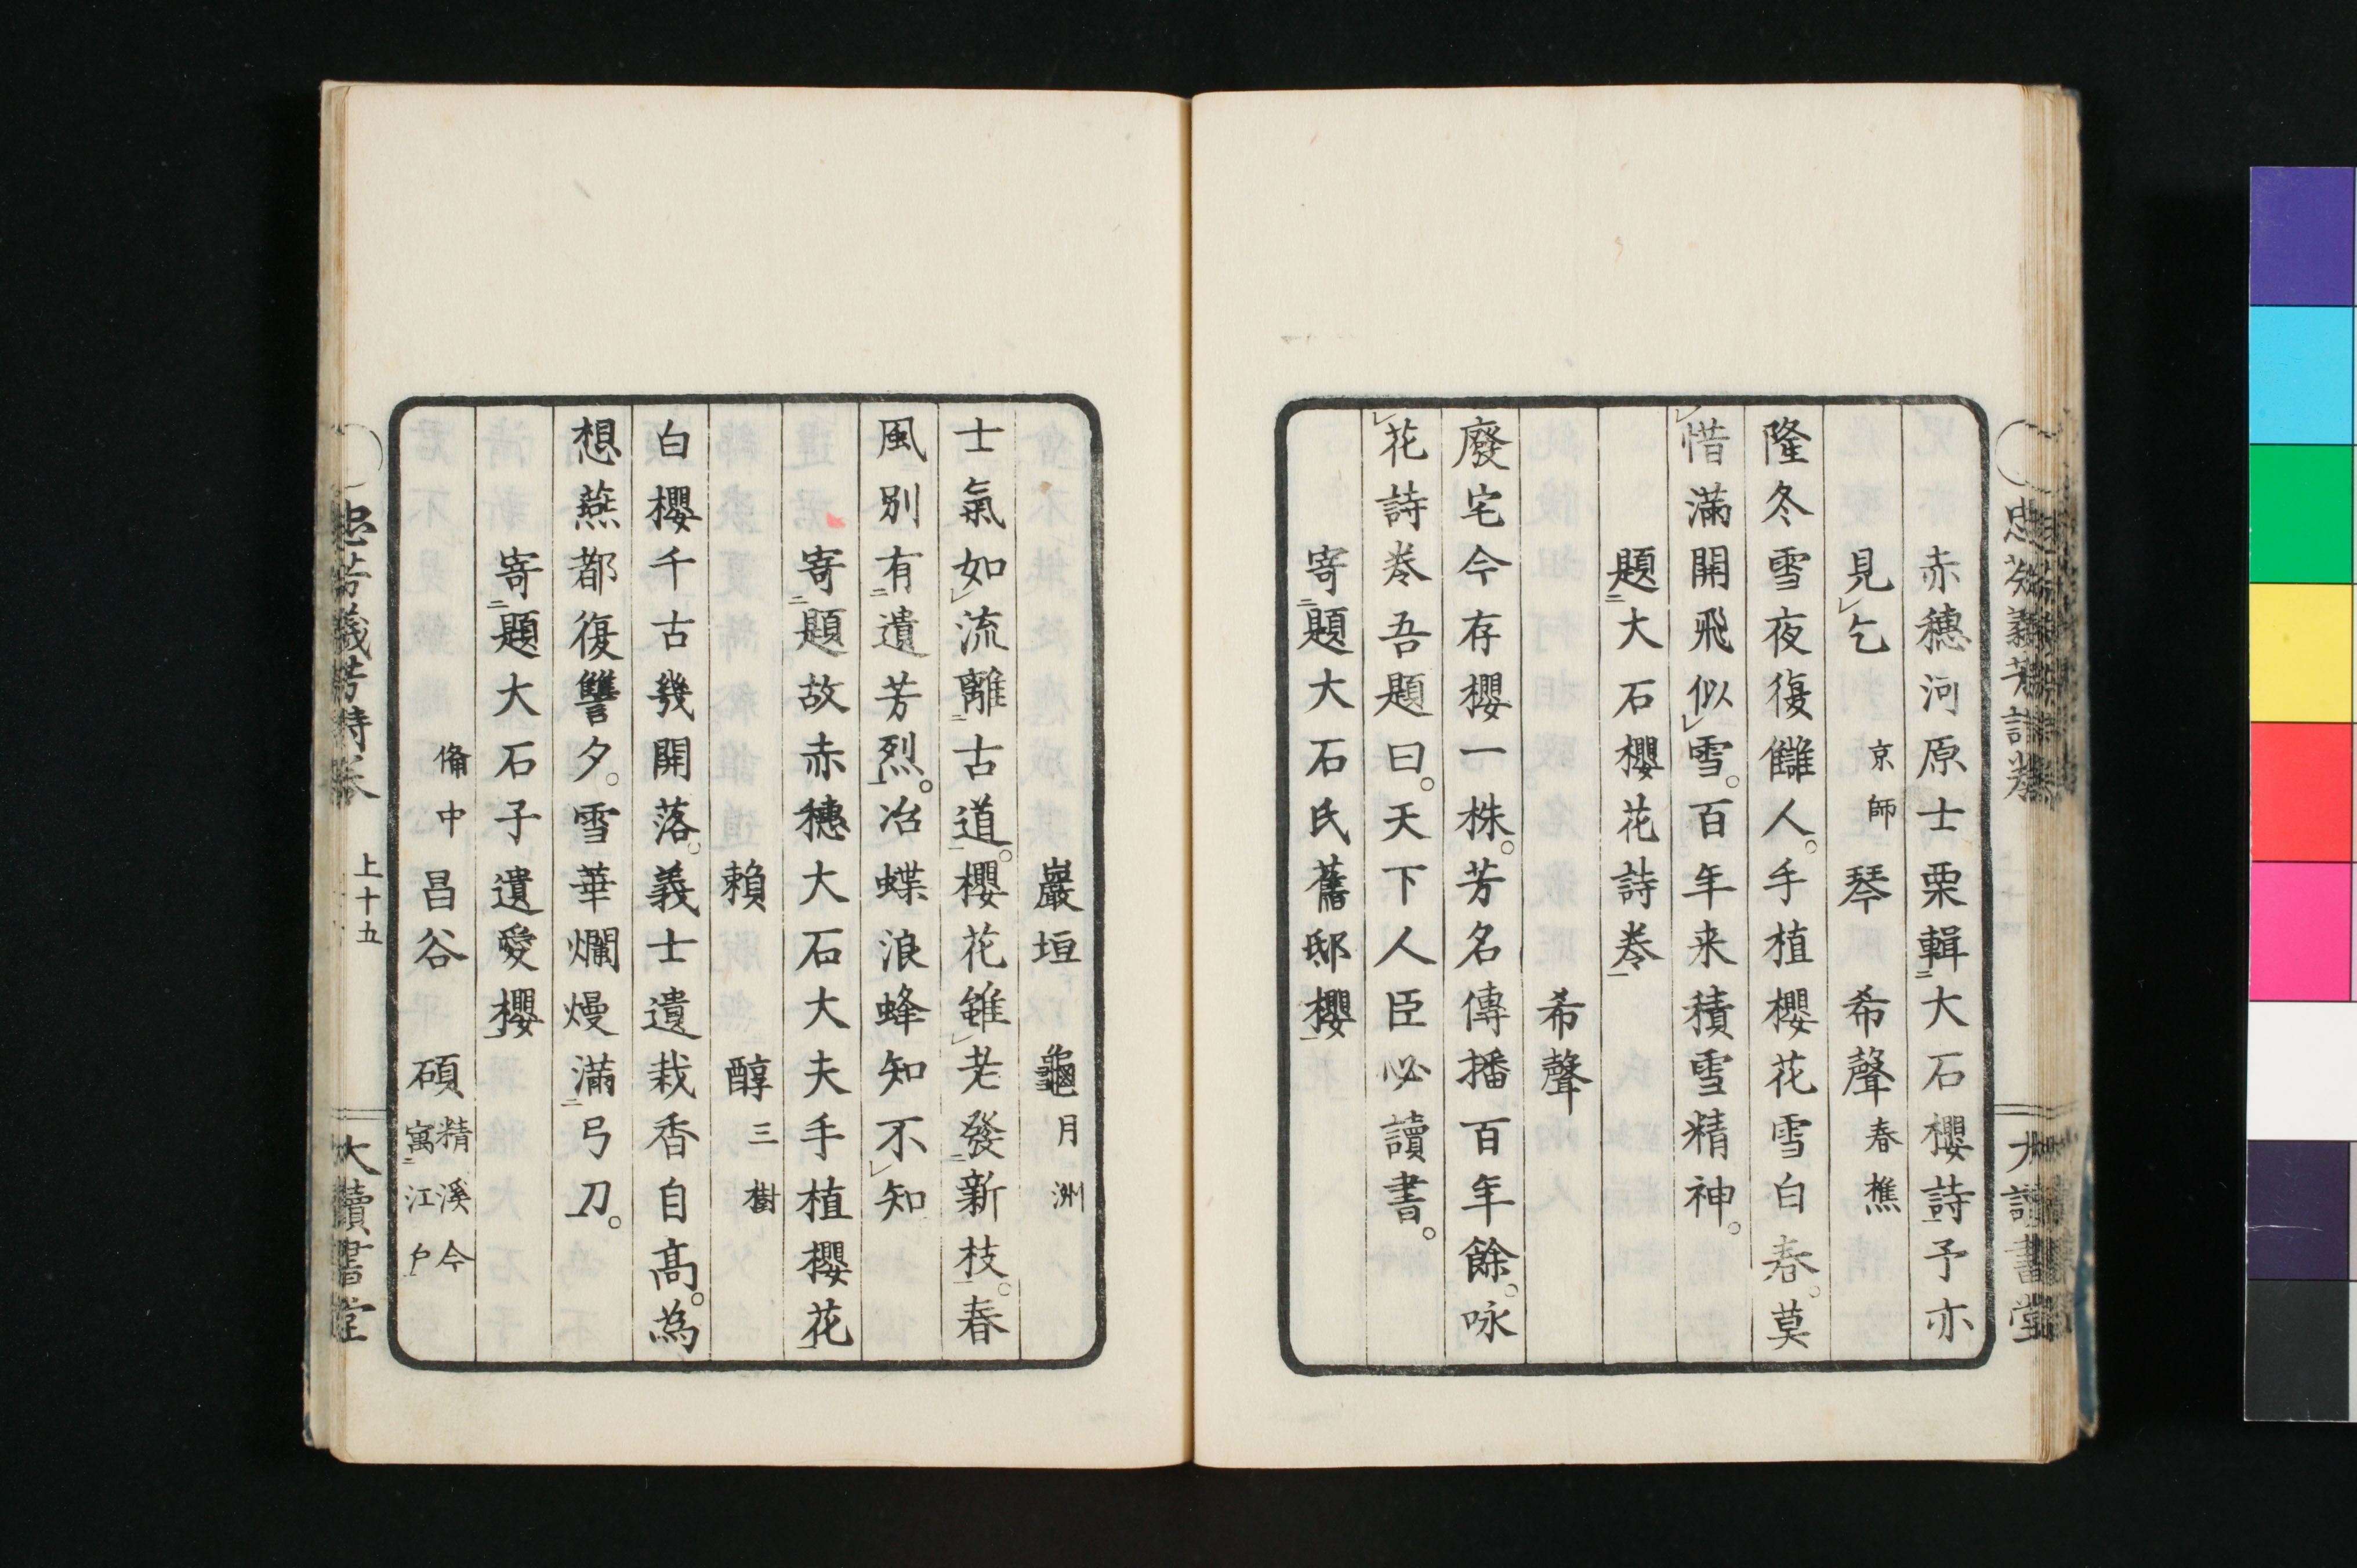 赤穗河原士栗輯大石櫻詩予亦
見乞　京師　琴　希聲　春樵
隆冬雪夜復讎人。手植櫻花雪白春。莫
惜滿開飛似雪。百年来積雪精神。
題大石櫻花詩卷
希聲
廢宅今存櫻一株。芳名傳播百年餘。咏
花詩卷吾題曰。天下人臣必讀書。
寄題大石氏舊邸櫻
巖垣　龜　月洲
士氣如流離古道。櫻花雖老發新枝。春
風別有遺芳烈。冶蝶浪蜂知不知
寄題故赤穗大石大夫手植櫻花
賴　醇　三樹
白櫻千古幾開落。義士遺栽香自高。為
想燕都復讐夕。雪華爛熳滿弓刀。
寄題大石子遺愛櫻
備中　昌谷　碩　精溪今寓江戶
忠芬義芳詩卷　上十五　大讀書堂